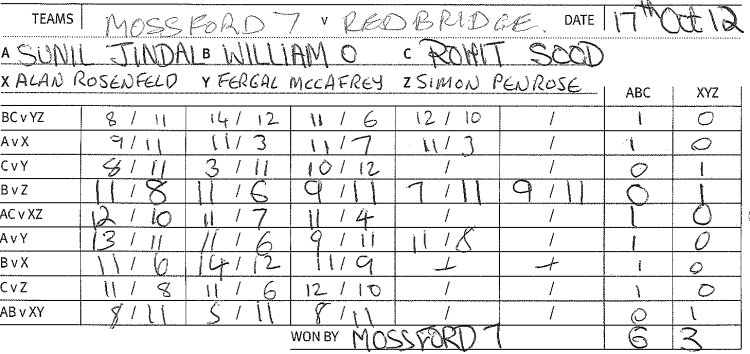 TEAMS MOSSFORD 7 V REDBRIDGE. DATE 17th Oct 12
A SUNIL JINDAL B WILLIAM O C ROHIT SOOD
X ALAN ROSENFELD Y FERGAL MCCAFREY Z SIMON PENROSE ABC XYZ
BC v YZ 8 / 11 14 / 12 11 / 6 12 / 10 / 1 0
A v X 9 / 11 11 / 3 11 / 7 11 / 3 / 1 0
C v Y 8 / 11 3 / 11 10 / 12 / / 0 1
B v Z 11 / 8 11 / 6 9 / 11 7 / 11 9 / 11 0 1
AC v XZ 12 / 10 11 / 7 11 / 4 / / 1 0
A v Y 13 / 11 11 / 6 9 / 11 11 / 8 / 1 0
B v X 11 / 6 14 / 12 11 / 9 / / 1 0
C v Z 11 / 8 11 / 6 12 / 10 / / 1 0
AB v XY 8 / 11 5 / 11 8 / 11 / / 0 1
WON BY MOSSFORD 7 6 3